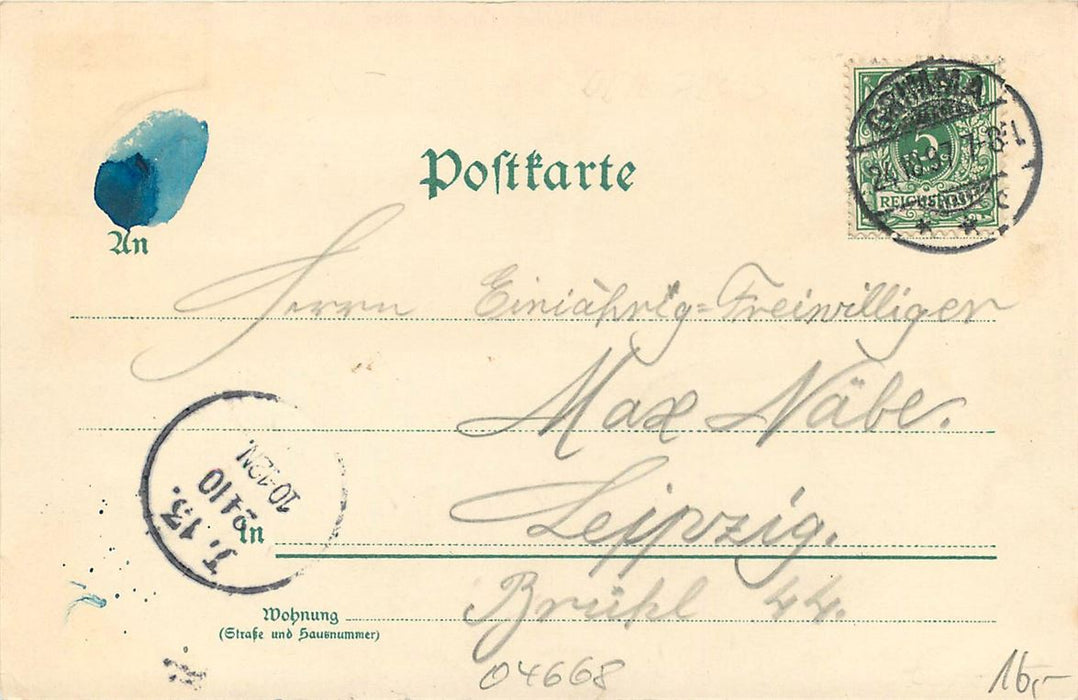 Postkarte
GRIMMA
24.10.97. 7-8N.
c
* *
5
REICHSPOST
An
Herrn Einjährig=Freiwilliger
Max Näbe.
Leipzig.
J. 13.
2410
10-12N.
in
Brühl 44.
Wohnung
(Straße und Hausnummer)
04668
16,-